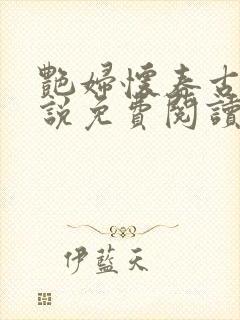 艷婦懷春古
說免費閱讀
伊藍天